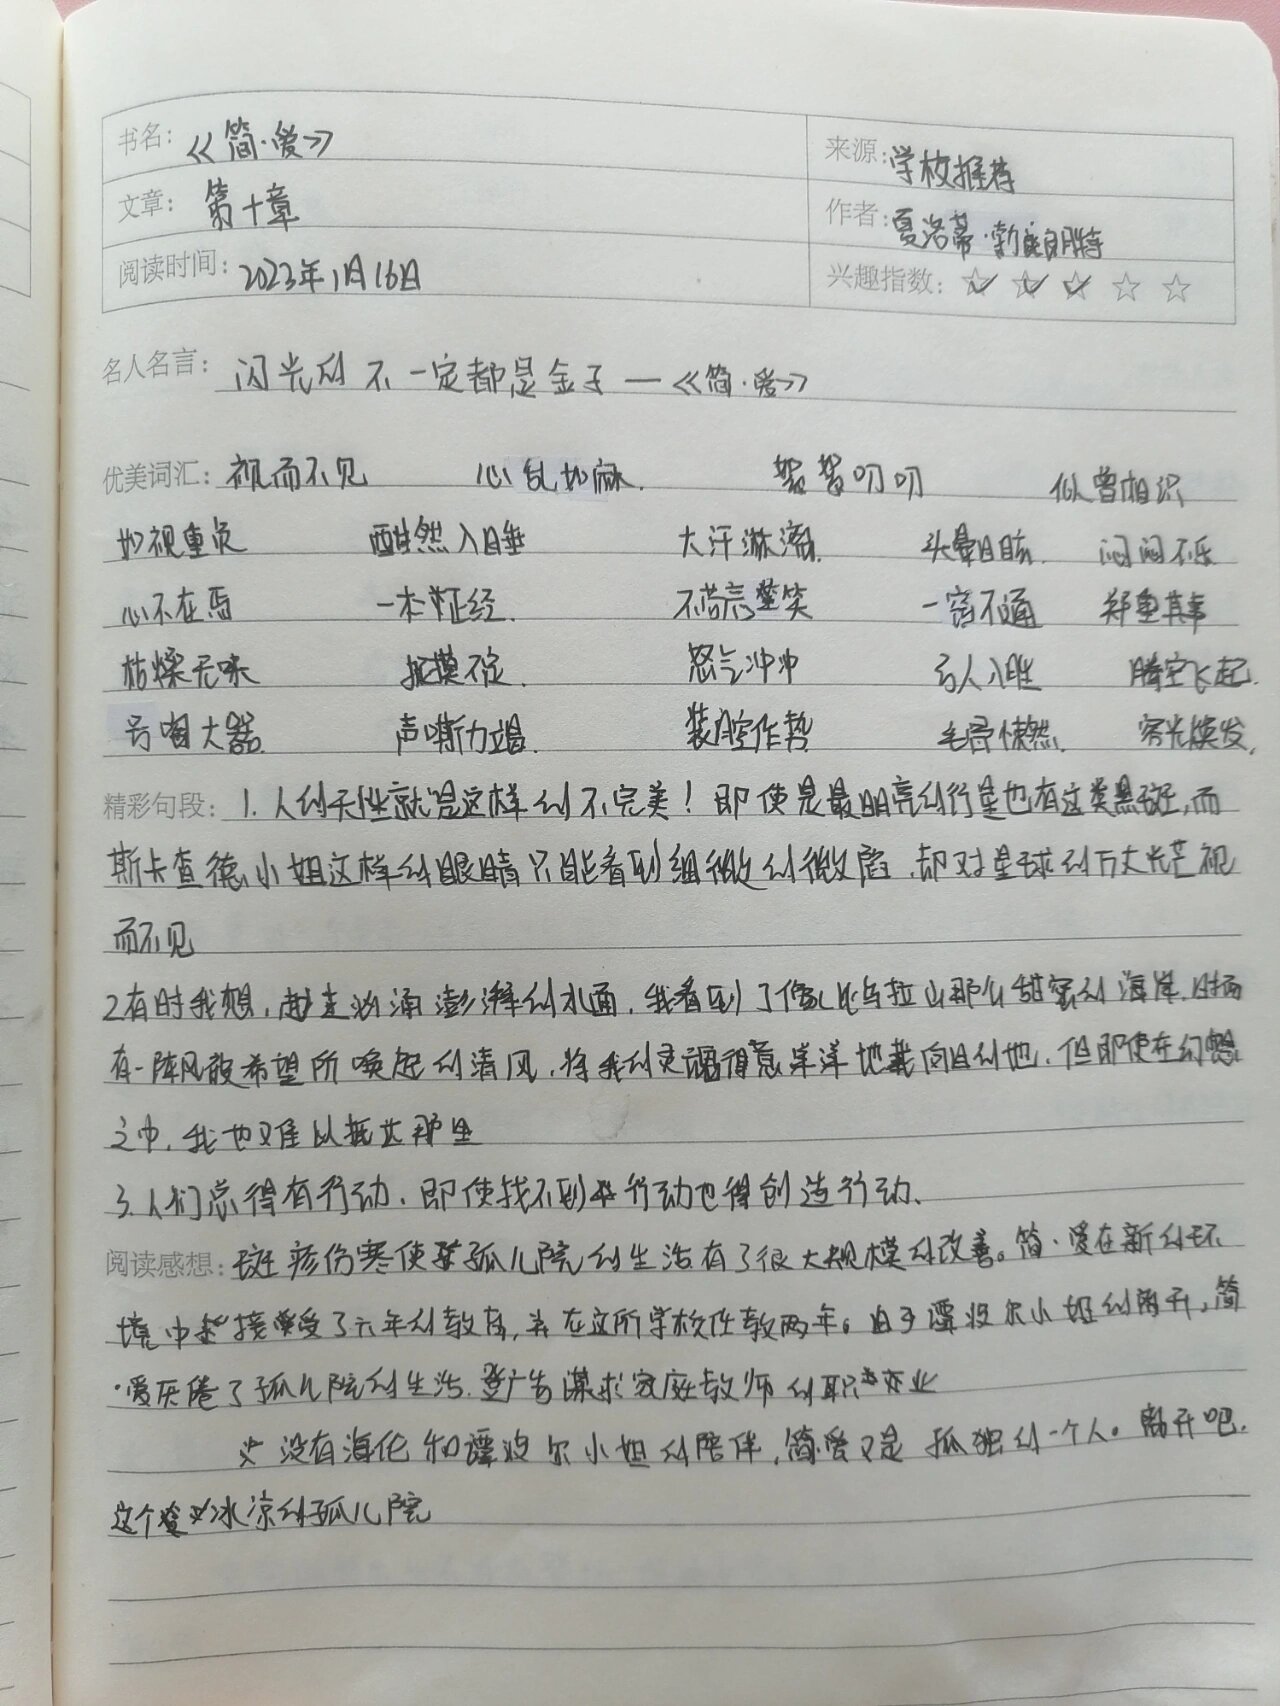 书名：《简·爱》
来源：学校推荐
文章：第十章
作者：夏洛蒂·勃良朗特
阅读时间：2023年1月16日
兴趣指数：☆☆☆☆☆
名人名言：闪光的不一定都是金子—《简·爱》
优美词汇：视而不见 心乱如麻. 絮絮叨叨 似曾相识
如视重负 酣然入睡 大汗淋漓. 头晕目眩. 闷闷不乐
心不在焉 一本正经. 不苟言笑 一窍不通 郑重其事
枯燥无味 捉摸不定 怒气冲冲 引人入胜 腾空飞起.
号啕大 声嘶力竭. 装腔作势 毛骨悚然. 容光焕发.
精彩句段：1.人的天性就是这样的不完美！即使是最明亮的行星也有这类黑斑,而
斯卡查德小姐这样的眼睛只能看到细微的缺陷,却对星球的万丈光芒视
而不见
2有时我想,越过汹涌澎湃的水面,我看到了像比乌拉山那么甜蜜的海岸.时而
有一阵风被希望所唤起的清风,将我的灵魂得意洋洋地载向目的地.但即使在幻想
之中,我也难以抵达那里
3.人们总得有行动.即使找不到行动也得创造行动.
阅读感想：斑疹伤寒使孤儿院的生活有了很大规模的改善。简·爱在新的环
境中接受了六年的教育,并在这所学校任教两年。由于谭波尔小姐的离开,简
·爱厌倦了孤儿院的生活.登广告谋求家庭教师的职业
没有海伦和谭波尔小姐的陪伴,简爱又是孤独的一个人。离开吧.
这个冰凉的孤儿院